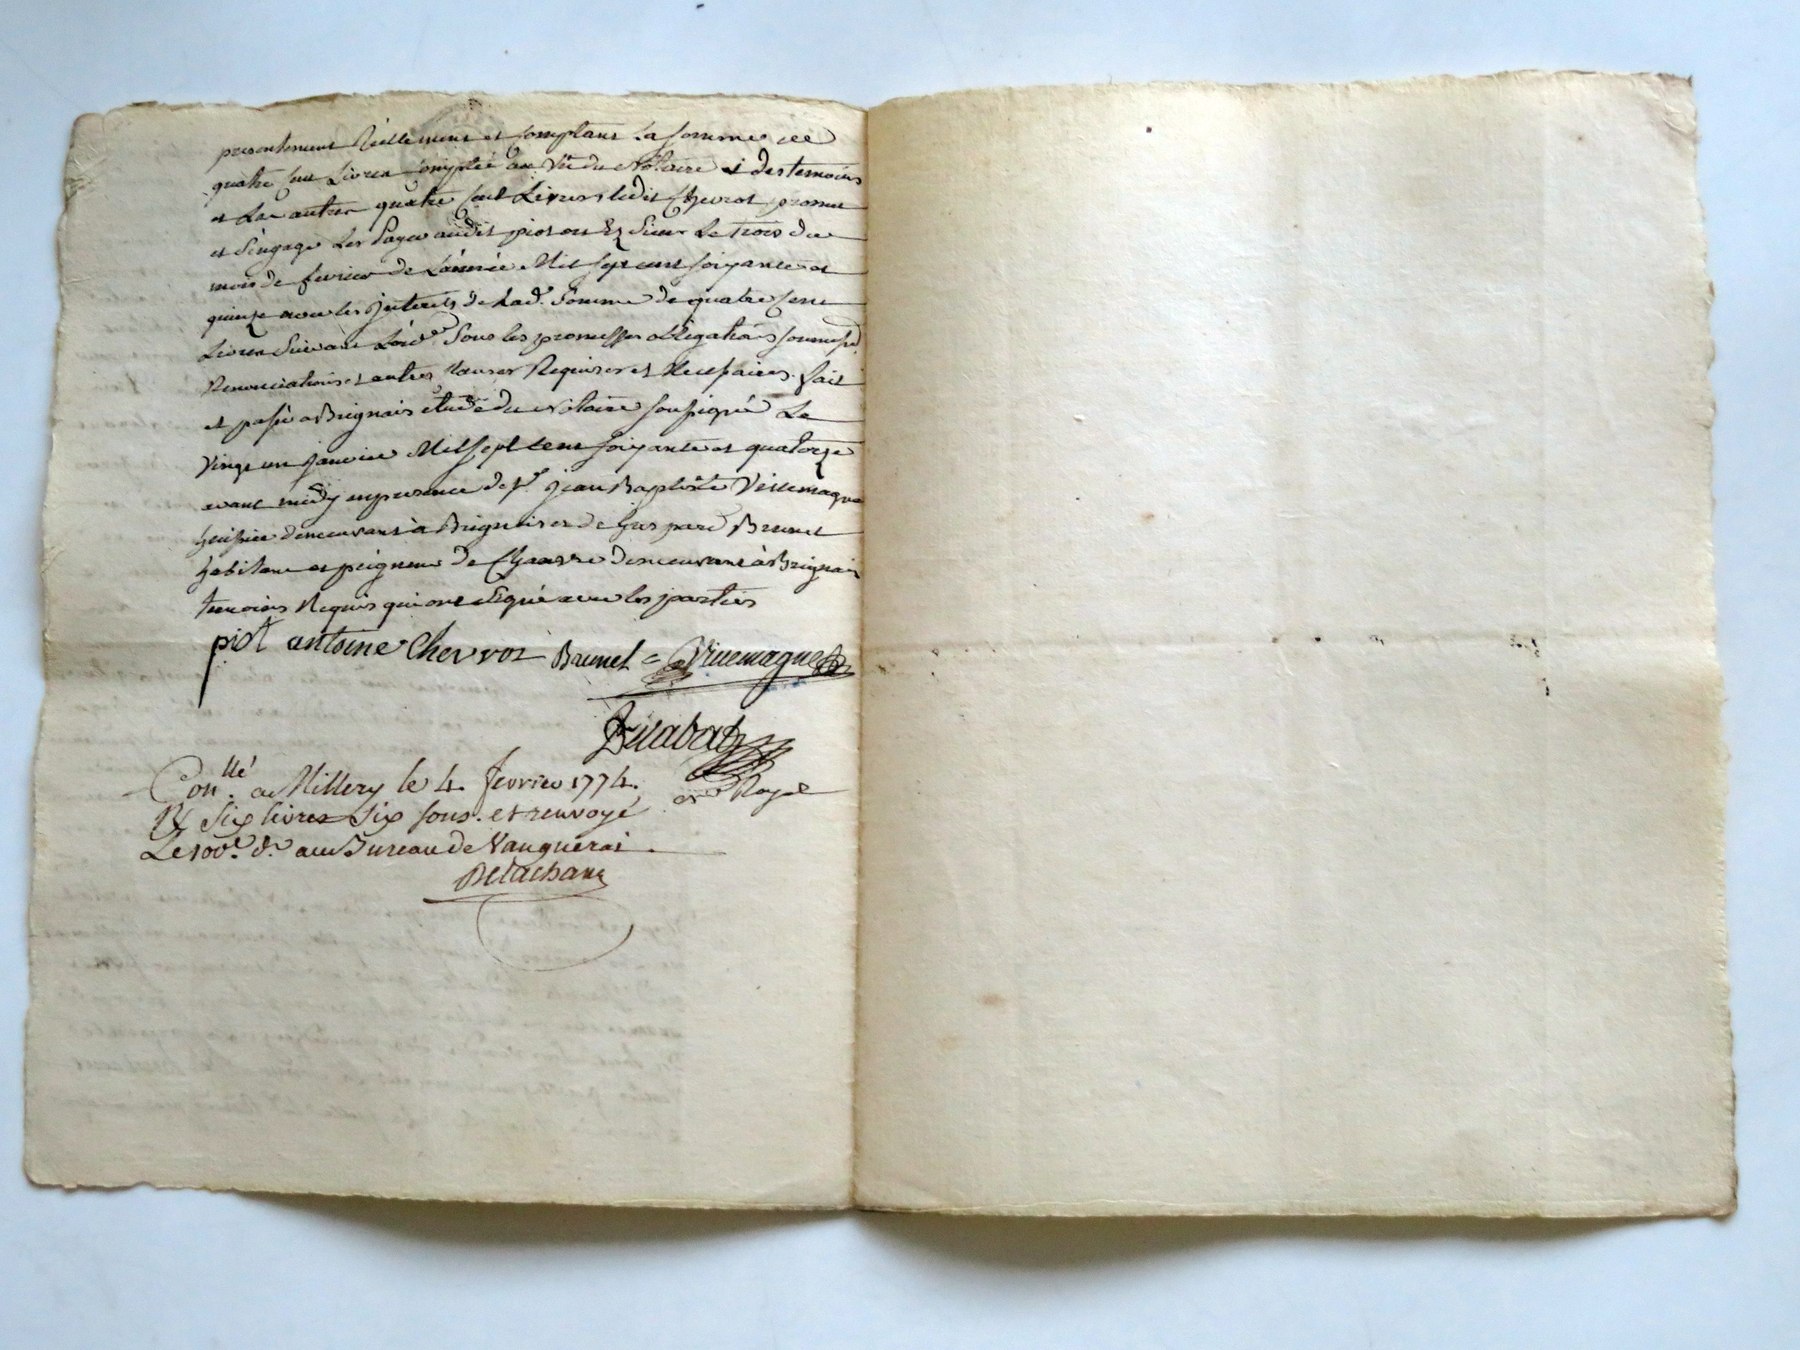 presentement Réellement et Comptant la somme de
quatre cent Livres Comptée au Vû du Notaire et des temoins
et Les autres quatre Cent Livres ledit Chevrot promet
et s'engage Les Payer audit piot ou Es Siens Le trois du
mois de fevrier de L'année Mil sept cent soixante et
quinze avec les Interets de Lad. Somme de quatre Cent
Livres Suivant Sous les promesses obligations soumiss.
Renonciations et autres Clauses Requises et Necessaires. fait
et passé a Brignais étude du Notaire soussigné Le
Vingt un Janvier Mil sept cent soixante et quatorze
avant midy en presence de Sr. Jean Baptiste Villemagne
huissier demeurant à Brignais et de Gaspard Brunet
habitant et peigneur de Chanvre demeurant à Brignais
temoins Requis qui ont signé avec les parties
piot antoine Chevrot Brunet Villemagne
nre Royal
Con.llé a Millery le 4. fevrier 1774.
R. Six livres Six sous. et renvoyé
Le 100e. d. au Bureau de Vaugnerai
Delachana